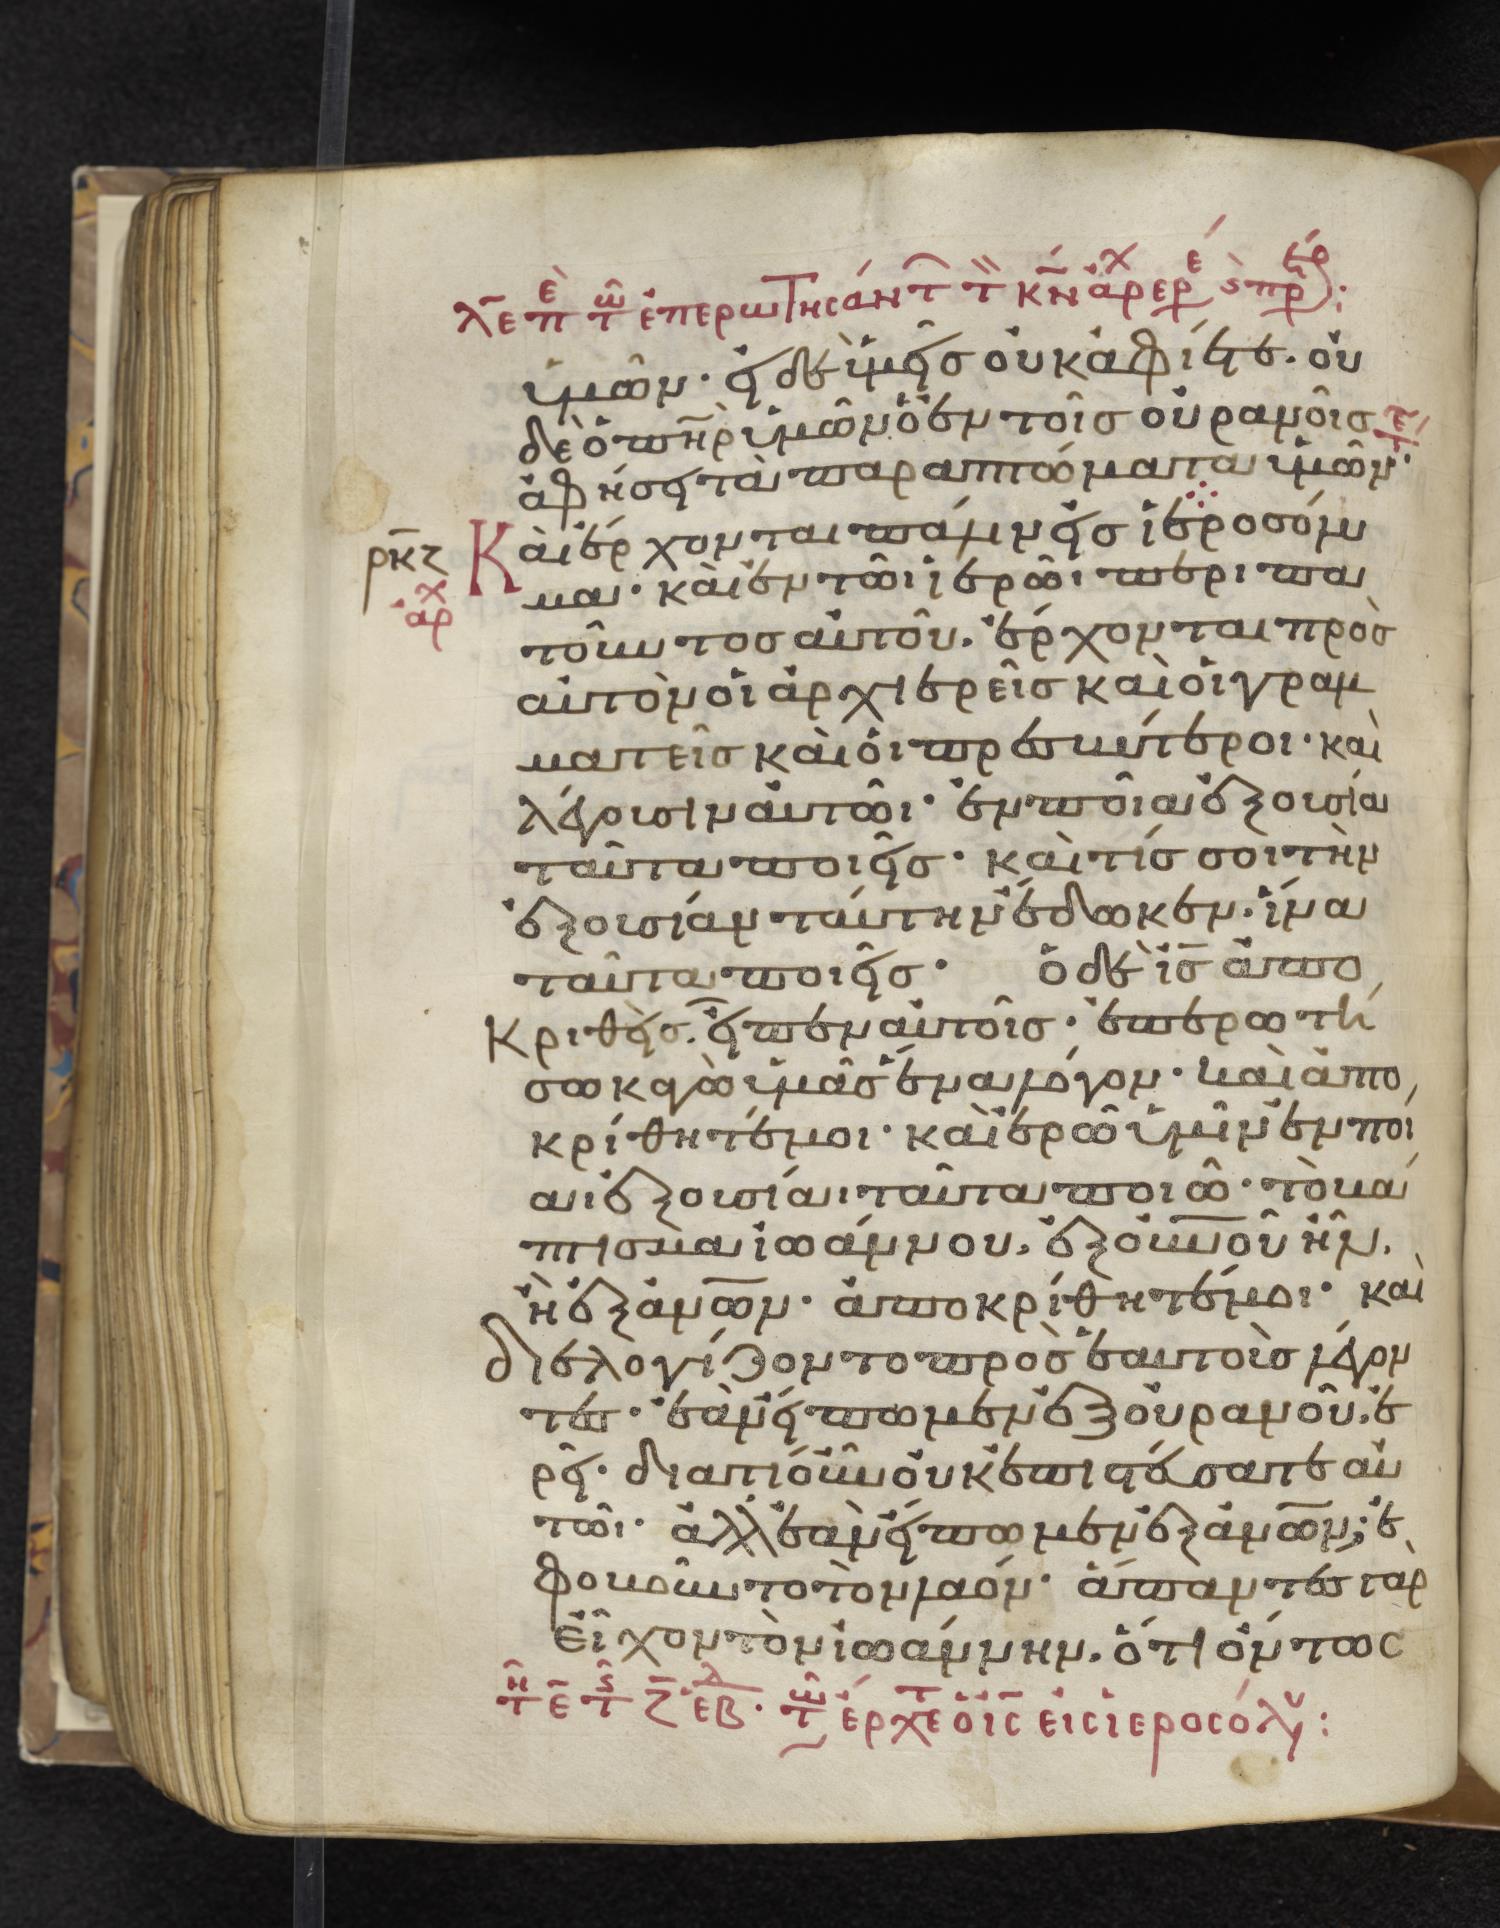 ὑμῶν· εἰ δὲ ὑμεῖς οὐκ ἀφίετε. οὐ
δὲ ὁ πηρ ὑμῶν ὁ ἐν τοῖς οὐρανοῖς
ἀφήσει τὰ παραπτώματα ὑμῶν·
Καὶ ἔρχονται πάλιν εἰς ἱεροσόλυ
ρκζ
μα· καὶ ἐν τῶι ἱερῶι περιπα
αρχ
τοῦντος αὐτοῦ. ἔρχονται πρὸς
αὐτὸν οἱ ἀρχιερεῖς καὶ οἱ γραμ
ματεῖς καὶ οἱ πρεσβύτεροι· καὶ
λέγουσιν αὐτῶι· ἐν ποίαι ἐξουσίαι
ταῦτα ποιεῖς· καὶ τίς σοι τὴν
ἐξουσίαν ταύτην ἔδωκεν. ἵνα
ταῦτα ποιεῖς· ὁ δὲ ις ἀπο
κριθεὶς. εἶπεν αὐτοῖς· ἐπερωτή
σω κἀγὼ ὑμᾶς ἕνα λόγον· καὶ ἀπο
κρίθητέ μοι· καὶ ἐρῶ ὑμῖν ἐν ποί
αι ἐξουσίαι ταῦτα ποιῶ· τὸ βά
πτισμα ἰωάννου. ἐξ οὐνου ἦν.
ἢ ἐξ ἀνων· ἀποκρίθητέ μοι· καὶ
διελογίζοντο πρὸς ἑαυτοὺς λέγον
τες· ἐὰν εἴπωμεν ἐξ οὐρανοῦ. ἐ
ρεῖ· διατί οὖν οὐκ ἐπιστεύσατε αὐ
τῶι· ἀλλ' ἐὰν εἴπωμεν ἐξ ἀνων; ἐ
φοβοῦντο τὸν λαόν· ἅπαντες γὰρ
εἶχον τὸν ἰωάννην. ὅτι ὄντως